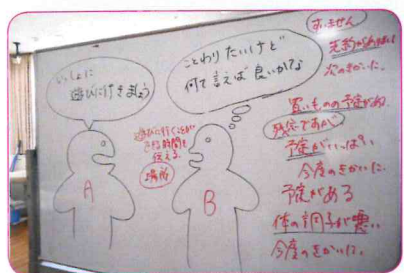 いっしょに
遊びに行きましょう
ことわりたいけど
何て言えば良いかな
A
B
遊びに行くことが
できる時間を
伝える
場所
すいません
先約があるので
次のきかいに.
買いものの予定がある.
残念ですが
予定がいっぱい
今度のきかいに.
予定がある
体の調子が悪い
今度のきかいに.